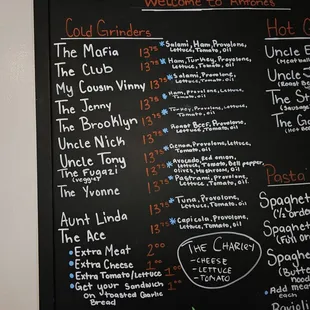 Welcome to Antones
Cold Grinders
The Mafia 13.75 * Salami, Ham, Provolone,
Lettuce, Tomato, oil
The Club 13.75 * Ham, Turkey, Provolone,
Lettuce, Tomato, oil
My Cousin Vinny 13.75 * Salami, Provolone,
Lettuce, Tomato, oil
The Jenny 13.75 * Ham, Provolone,
Lettuce, Tomato, oil
The Brooklyn 13.75 * Turkey, Provolone,
Lettuce, Tomato, oil
Uncle Nick 13.75 * Roast Beef, Provolone,
Lettuce, Tomato, oil
Uncle Tony 13.75 * Genoa, Provolone, Lettuce,
Tomato, oil
The Fugazi 13.75 * Avocado, Red onion,
(veggie) Lettuce, Tomato, Bell pepper,
Olives, Mushrooms, oil
The Yvonne 13.75 * Pastrami, Provolone,
Lettuce, Tomato, oil
Aunt Linda 13.75 * Tuna, Provolone,
Lettuce, Tomato, oil
The Ace 13.75 * Capicola, Provolone,
Lettuce, Tomato, oil
* Extra Meat 2.00
* Extra Cheese 1.00
* Extra Tomato/Lettuce 1.00
* Get your Sandwich 1.00
on toasted Garlic
Bread
THE CHARLEY
- CHEESE
- LETTUCE
- TOMATO
Hot
Uncle
Uncle
The
The
Pasta
Spaghet
Spaghet
Spaghet
* Add mea
each
Ravioli